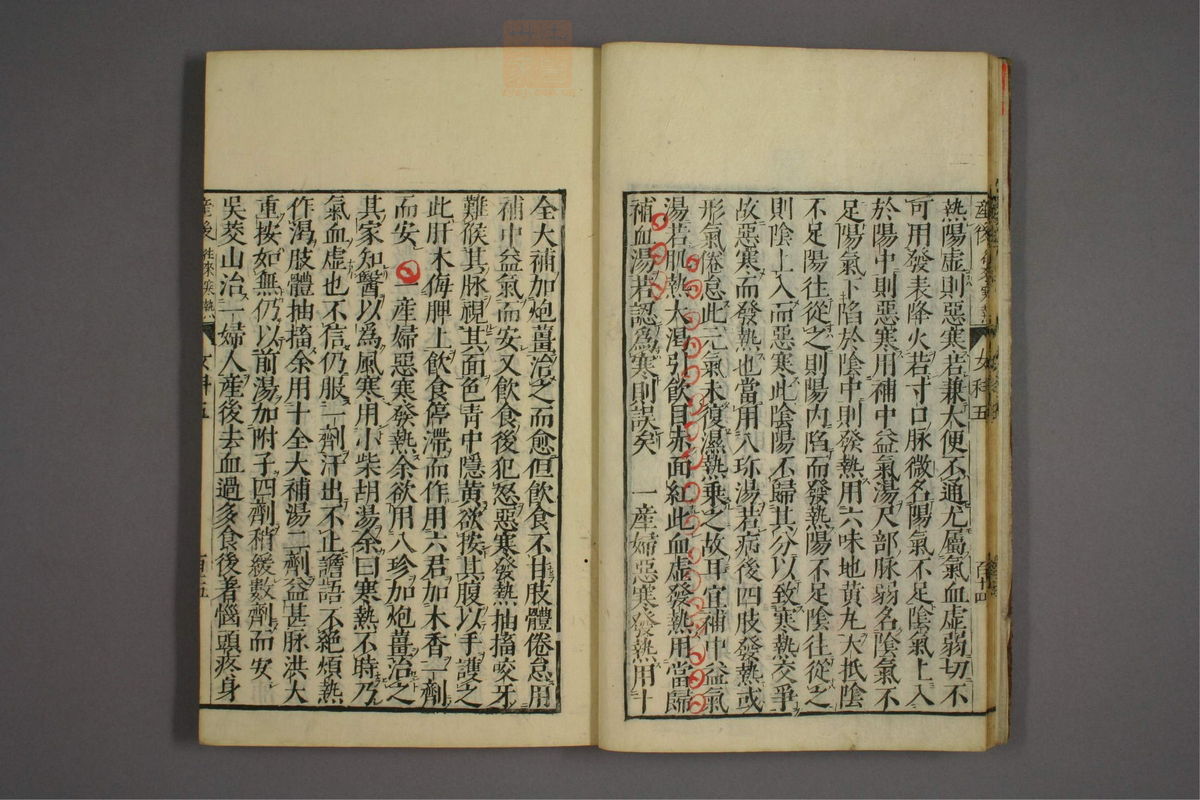 產後往來寒熱 女科五 百十四
熱陽虛則惡寒若兼大便不通尤屬氣血虛弱切不
可用發表降火若寸口脉微名陽氣不足陰氣上入
於陽中則惡寒用補中益氣湯尺部脉弱名陰氣不
足陽氣下陷於陰中則發熱用六味地黄丸大抵陰
不足陽往從之則陽内陷而發熱陽不足陰往從之
則陰上入而惡寒此陰陽不歸其分以致寒熱交爭
故惡寒而發熱也當用八珎湯若病後四肢發熱或
形氣倦怠此元氣未復濕熱乗之故耳宜補中益氣
湯若肌熱大渴引飲目赤面紅此血虛發熱用當歸
補血湯若認爲寒則誤矣 一產婦惡寒發熱用十
全大補加炮薑治之而愈但飲食不甘肢體倦怠用
補中益氣而安又飲食後犯怒惡寒發熱抽搐咬牙
難候其脉視其面色靑中隱黄欲按其腹以手護之
此肝木侮脾土飲食停滯而作用六君加木香一劑
而安 一產婦惡寒發熱余欲用八珍加炮薑治之
其家知醫以爲風寒用小柴胡湯余曰寒熱不時乃
氣血虛也不信仍服一劑汗出不止譫語不絶煩熱
作渴肢體抽搐余用十全大補湯二劑益甚脉洪大
重按如無仍以前湯加附子四劑稍緩數劑而安
吳茭山治一婦人產後去血過多食後着惱頭疼身
產後往來寒熱 女科五 百十五